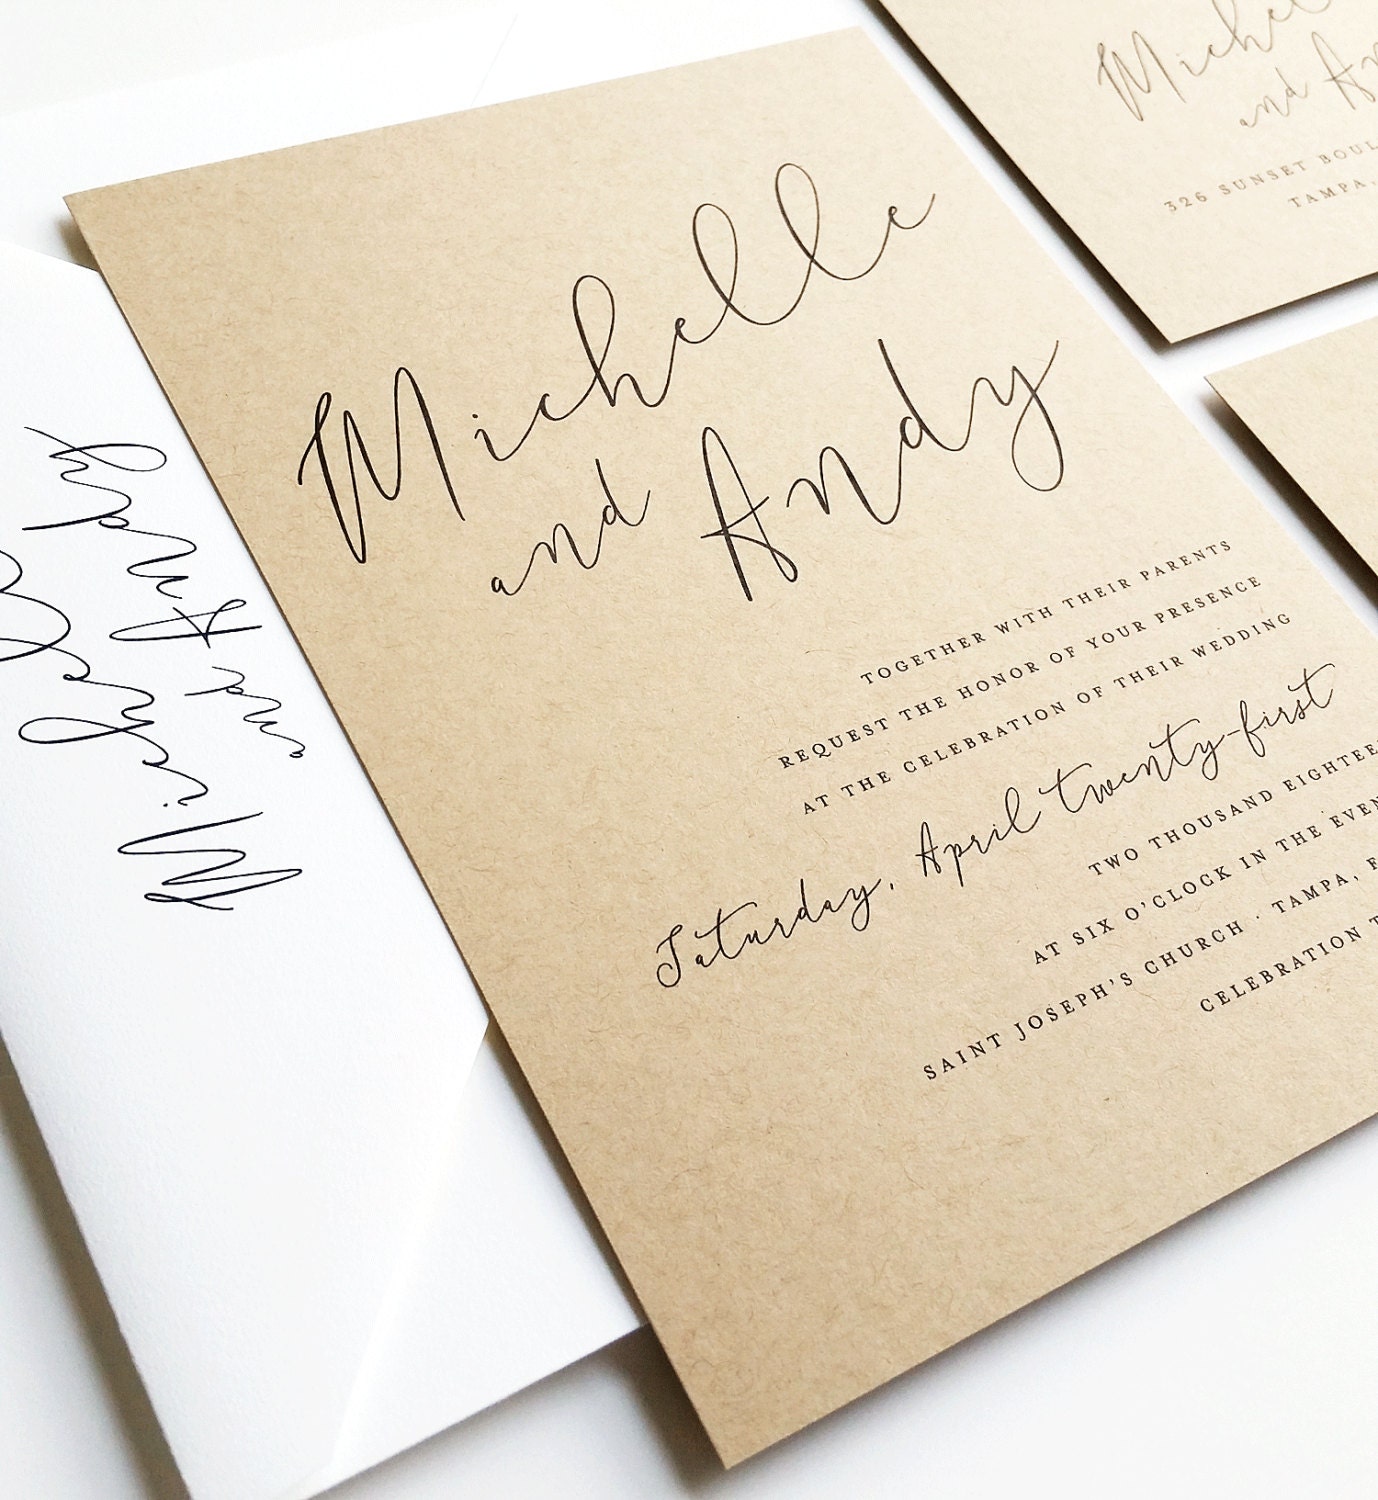 Michelle
and Andy
TOGETHER WITH THEIR PARENTS
REQUEST THE HONOR OF YOUR PRESENCE
AT THE CELEBRATION OF THEIR WEDDING
Saturday, April twenty-first
TWO THOUSAND EIGHTEE
AT SIX O'CLOCK IN THE EVEN
SAINT JOSEPH'S CHURCH · TAMPA, F
CELEBRATION T
Michelle
and Andy
Michel
and An
326 SUNSET BOUL
TAMPA,